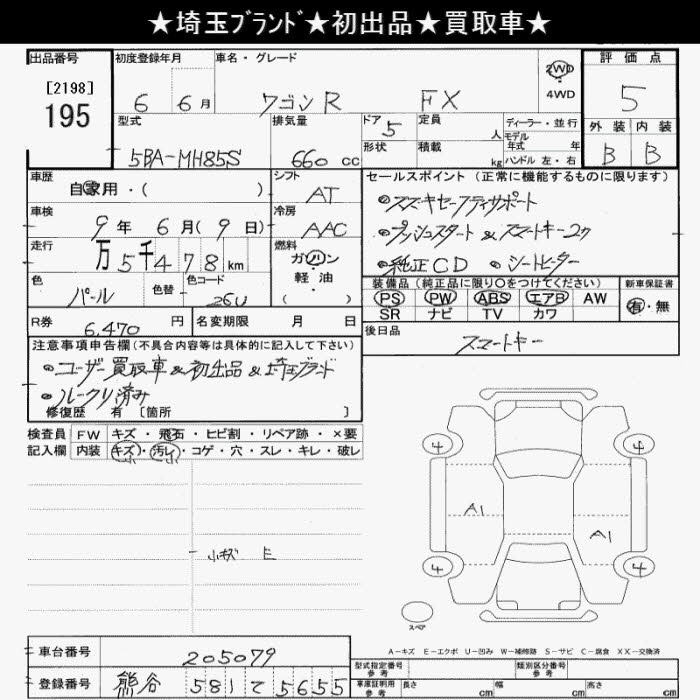 ★埼玉ﾌﾞﾗﾝﾄﾞ★初出品★買取車★
出品番号 初度登録年月 車名・グレード 評価点
[2198] 195 6 6月 ワゴンR FX 2WD 4WD 5
型式 排気量 ドア 定員 ディーラー・並行 外装 内装
5BA-MH85S 660 cc 5 人 モデル年式 年 B B
形状 積載 kg ハンドル 左・右
車歴 シフト セールスポイント (正常に機能するものに限ります)
自家用・( ) AT •スズキセーフティサポート
車検 冷房
9年 6月(9日) AAC •プッシュスタート & スマートキー2ケ
走行 燃料
万5千478km ガソリン •純正CD •シートヒーター
色 色替 色コード 軽油 装備品 (純正品に限り○をつけてください) 新車保証書
パール 26U ( ) PS PW ABS エアB AW 有・無
SR ナビ TV カワ
R券 6,470円 名変期限 月 日 後日品
スマートキー
注意事項申告欄(不具合内容等は具体的に記入して下さい)
•ユーザー買取車 & 初出品 & 埼玉ブランド
•ルークリ済み
修復歴 有 [箇所 ]
検査員 FW キズ・飛石・ヒビ割・リペア跡・×要
記入欄 内装 キズ・汚レ・コゲ・穴・スレ・キレ・破レ
4 4
A1 A1
小キズ E
4 4
スペア
A－キズ E－エクボ U－凹み W－補修跡 S－サビ C－腐食 XX－交換済
車台番号 205079
型式指定番号 参考 類別区分番号 参考
登録番号 熊谷 581 て 5655
車庫証明用 参考 長さ cm 幅 cm 高さ cm